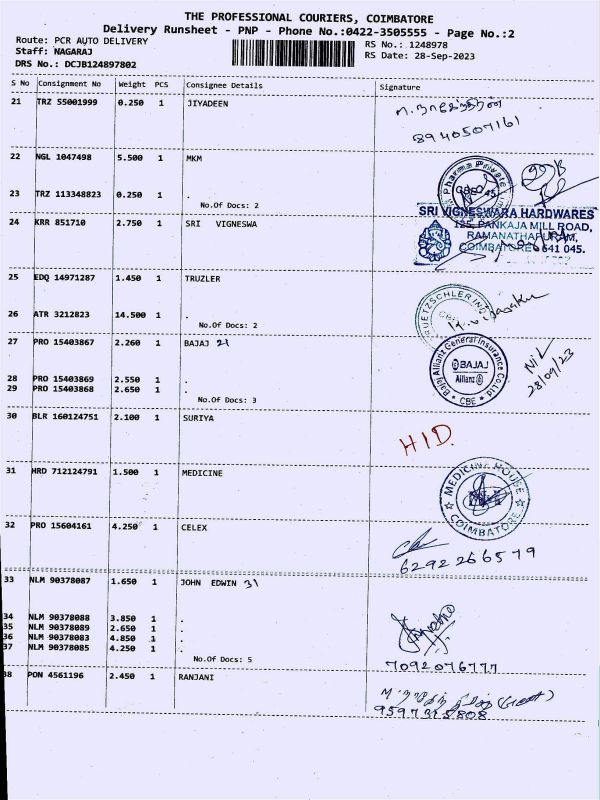 THE PROFESSIONAL COURIERS, COIMBATORE
Delivery Runsheet - PNP - Phone No.:0422-3505555 - Page No.:2
Route: PCR AUTO DELIVERY
RS No.: 1248978
Staff: NAGARAJ
RS Date: 28-Sep-2023
DRS No.: DCJB124897802
S No Consignment No Weight PCS Consignee Details Signature
21 TRZ 55001999 0.250 1 JIYADEEN
8940507161
22 NGL 1047498 5.500 1 MKM
Pharma Private
CBE-45
23 TRZ 113348823 0.250 1 .
No.Of Docs: 2
24 KRR 851710 2.750 1 SRI VIGNESWA
SRI VIGNESWARA HARDWARES
125, PANKAJA MILL ROAD,
RAMANATHAPURAM,
COIMBATORE - 641 045.
25 EDQ 14971287 1.450 1 TRUZLER
26 ATR 3212823 14.500 1 .
No.Of Docs: 2
27 PRO 15403867 2.260 1 BAJAJ 21
Bajaj Allianz General Insurance Co. Ltd.
BAJAJ
Allianz
CBE
Nil
28/09/23
28 PRO 15403869 2.550 1 .
29 PRO 15403868 2.650 1 .
No.Of Docs: 3
30 BLR 160124751 2.100 1 SURIYA
HID.
31 HRD 712124791 1.500 1 MEDICINE
MEDICINE HOUSE
COIMBATORE
32 PRO 15604161 4.250 1 CELEX
6292266579
33 NLM 90378087 1.650 1 JOHN EDWIN 31
34 NLM 90378088 3.850 1 .
35 NLM 90378089 2.650 1 .
36 NLM 90378083 4.850 1 .
37 NLM 90378085 4.250 1 .
No.Of Docs: 5
7092076777
38 PON 4561196 2.450 1 RANJANI
9597315808